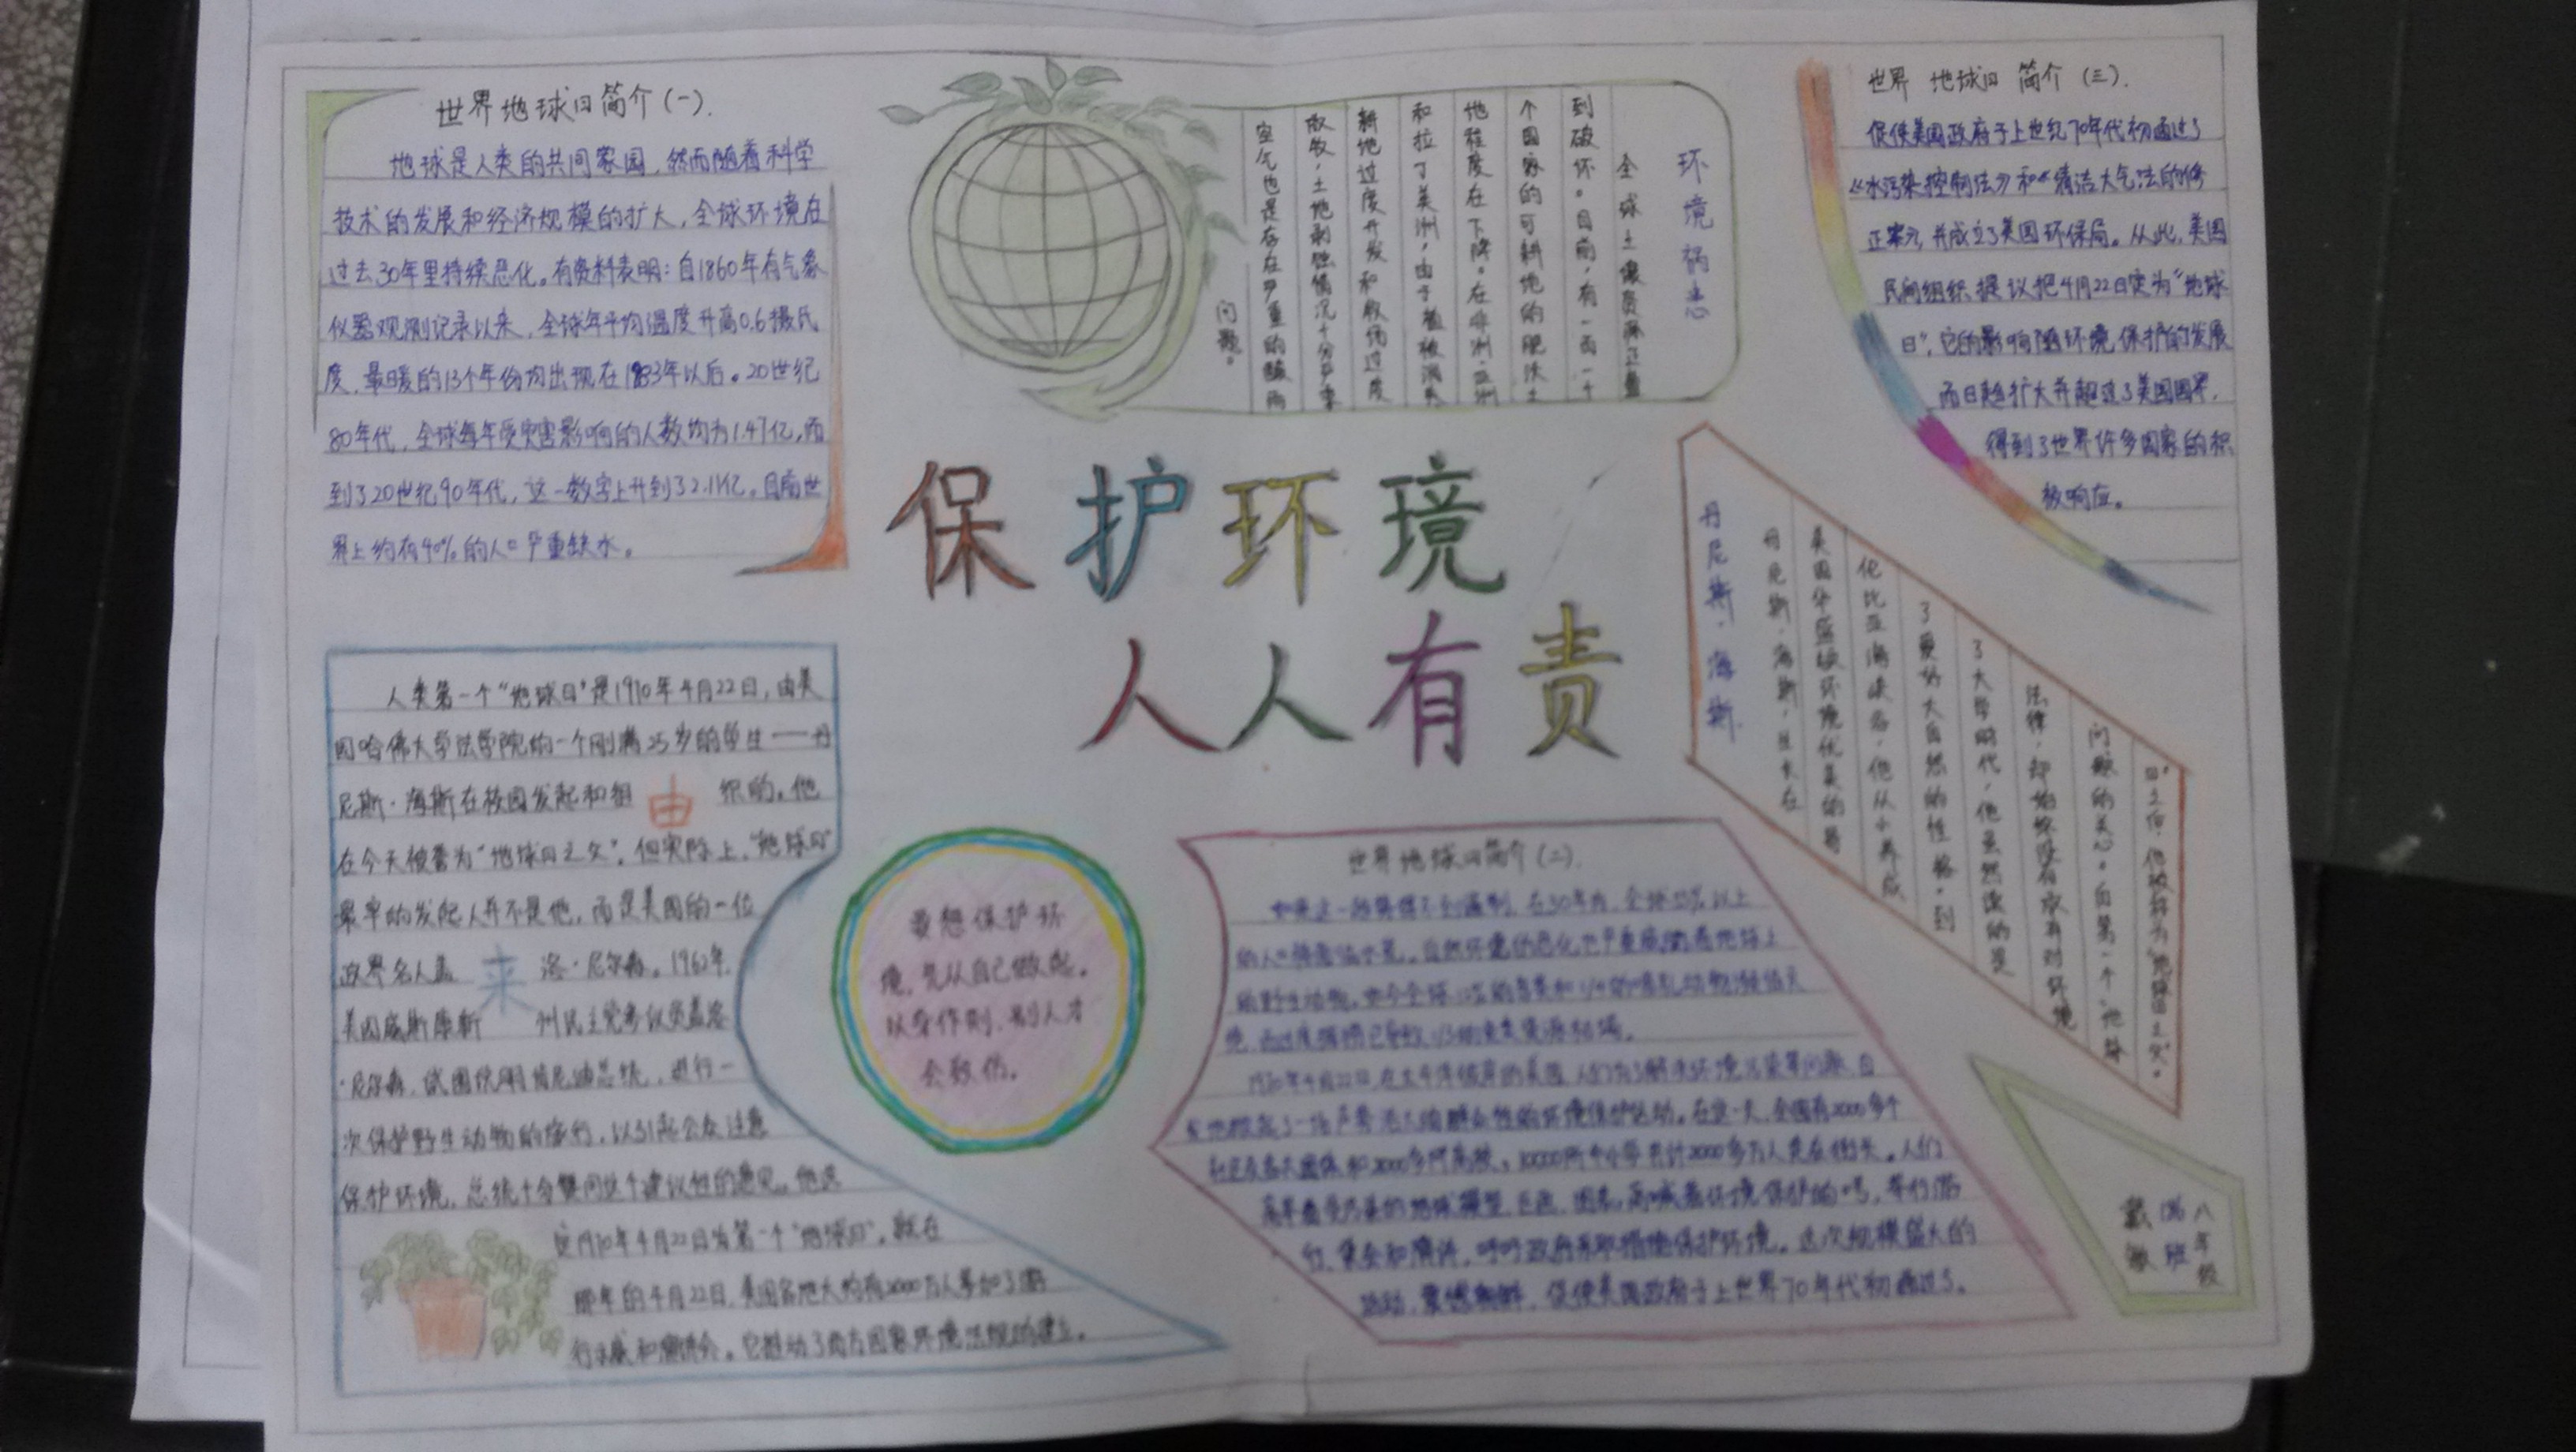 世界地球日简介(一).
地球是人类的共同家园,然而随着科学
技术的发展和经济规模的扩大,全球环境在
过去30年里持续恶化。有资料表明:自1860年有气象
仪器观测记录以来,全球年平均温度升高0.6摄氏
度,最暖的13个年份均出现在1983年以后。20世纪
80年代,全球每年受灾害影响的人数均为1.47亿,而
到了20世纪90年代,这一数字上升到了2.11亿。目前世
界上约有40%的人口严重缺水。
环境祸患
全球土壤资源正遭
到破坏。目前,有一百一十
个国家的可耕地的肥沃土
地程度在下降。在非洲亚洲
和拉丁美洲,由于植被消失
耕地过度开发和牧场过度
放牧,土地剥蚀情况十分严重
空气也是存在严重的酸雨
问题。
世界地球日简介(三).
促使美国政府于上世纪70年代初通过了
《水污染控制法》和《清洁大气法的修
正案》,并成立了美国环保局。从此,美国
民间组织提议把4月22日定为"地球
日",它的影响随环境保护的发展
而日趋扩大并超过了美国国界,
得到了世界许多国家的积
极响应。
保护环境
人人有责
丹尼斯·海斯
丹尼斯·海斯,生长在
美国华盛顿环境优美的哥
伦比亚海峡谷,他从小养成
了爱好大自然的性格。到
了大学时代,他虽然读的是
法律,却始终没有放弃对环境
问题的关心。自第一个"地球
日"之后,他被称为"地球日之父"。
人类第一个"地球日"是1970年4月22日,由美
国哈佛大学法学院的一个刚满25岁的学生——丹
尼斯·海斯在校园发起和组 由 织的。他
在今天被誉为"地球日之父"。但实际上,"地球日"
最早的发起人并不是他,而是美国的一位
政界名人盖 来 洛·尼尔森。1962年,
美国威斯康新 州民主党参议员盖洛
·尼尔森,试图说服肯尼迪总统,进行一
次保护野生动物的旅行,以引起公众注意
保护环境,总统十分赞同这个建议性的意见。他选
定1970年4月22日为第一个"地球日"。就在
那年的4月22日,美国各地大约有2000万人参加了游
行示威和演讲会。它推动了西方国家环境法规的建立。
要想保护环
境,先从自己做起。
以身作则,别人才
会效仿。
世界地球日简介(二).
如果这一趋势得不到遏制,在30年内,全球55%以上
的人口将面临水荒。自然环境的恶化也严重威胁着地球上
的野生动物。如今全球12%的鸟类和1/4的哺乳动物濒临灭
绝,而过度捕捞已导致1/3的鱼类资源枯竭。
1970年4月22日,在太平洋彼岸的美国,人们为了解决环境污染等问题,自
发地掀起了一场声势浩大的群众性的环境保护运动。在这一天,全国有2000多个
社区各大团体和2000多所高校,10000所中小学共计2000多万人走在街头。人们
高举着受污染的地球模型、巨画、图表,高喊着环境保护的口号,举行游
行、集会和演讲,呼吁政府采取措施保护环境。这次规模盛大的
活动,震撼朝野,促使美国政府于上世界70年代初通过了。
八年级
班
戴敏